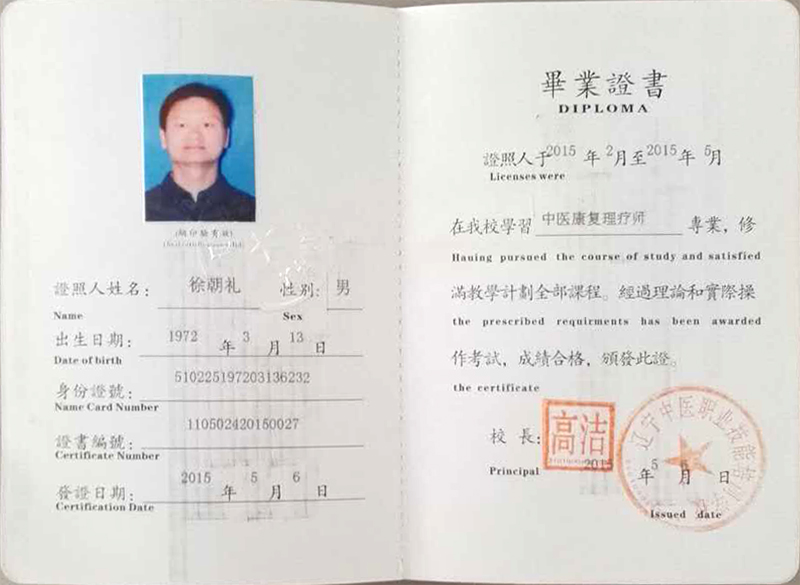 證照人姓名：徐朝礼 性别：男
Name Sex
出生日期：1972 年 3 月 13 日
Date of birth
身份證號：510225197203136232
Name Card Number
證書編號：110502420150027
Certificate Number
發證日期：2015 年 5 月 6 日
Certification Date
畢業證書
DIPLOMA
證照人于2015 年 2月至2015年 5月
Licenses were
在我校學習 中医康复理疗师 專業，修
Hauing pursued the course of study and satisfied
滿教學計劃全部課程。經過理論和實際操
the prescribed requirments has been awarded
作考試，成績合格，頒發此證。
the certificate
校長：高洁
Principal
2015 年 5 月 6 日
Issued date
辽宁中医职业技能培训学校